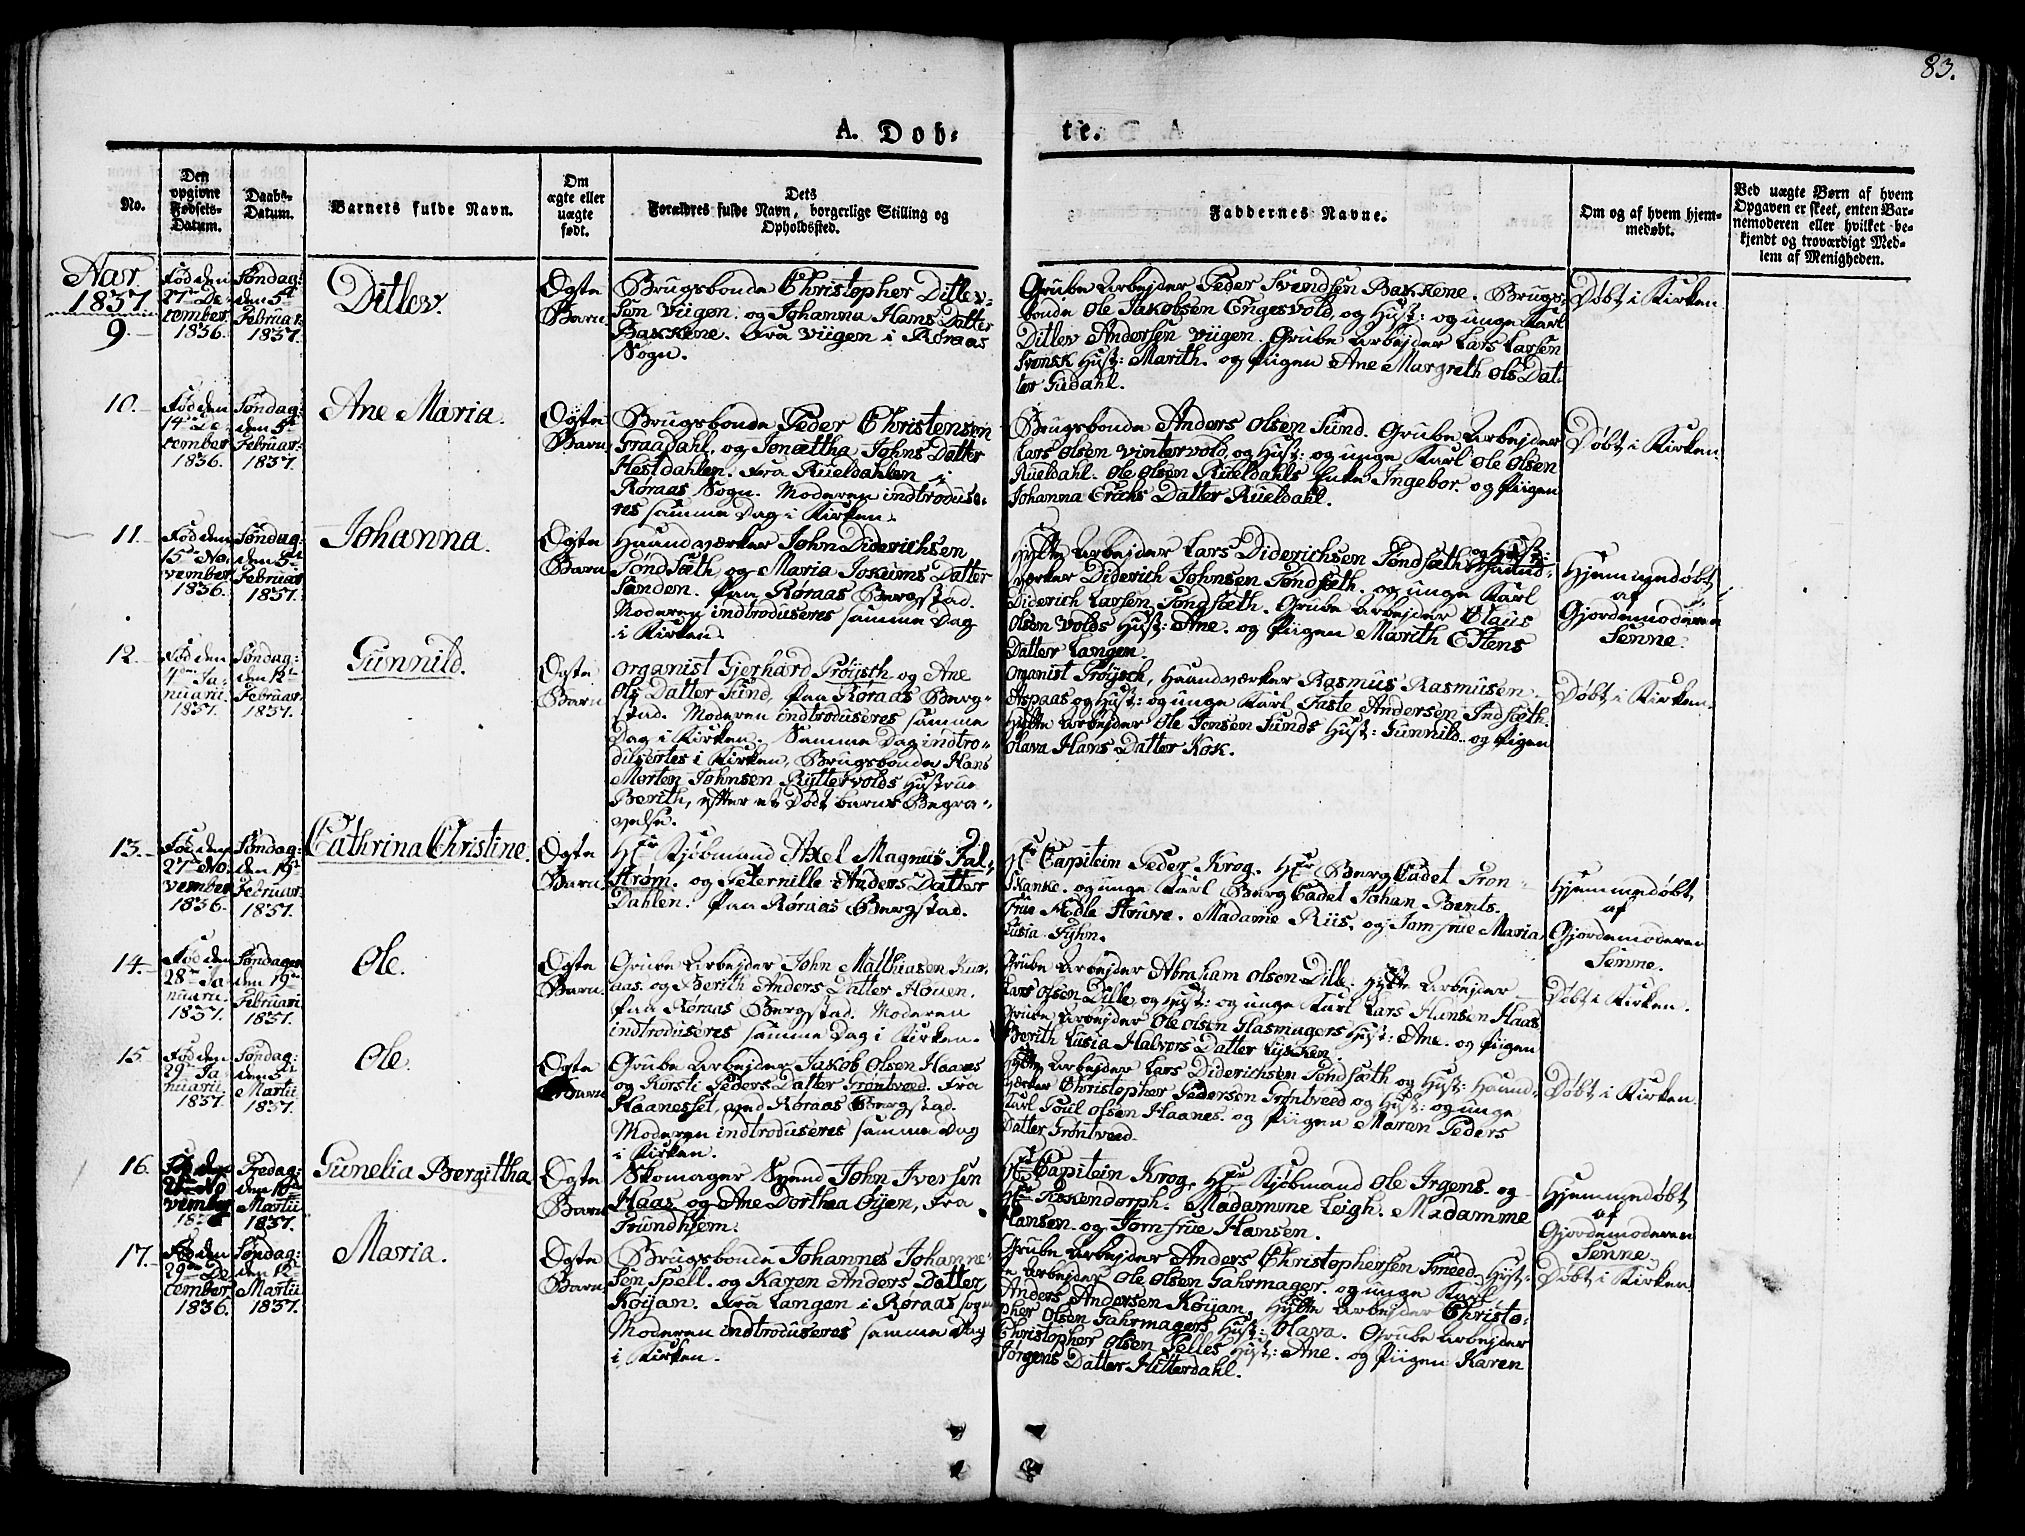 83.
A. Døb-
te.
No.
Den
opgivne
Fødsels-
Datum.
Daabs-
Datum.
Barnets fulde Navn.
Om
ægte eller
uægte
født.
Dets
Forældres fulde Navn, borgerlige Stilling og
Opholdssted.
Faddernes Navne.
Om og af hvem hjem-
medøbt.
Ved uægte Børn af hvem
Opgaven er skeet, enten Bar-
nemoderen eller hvilket be-
kjendt og troværdigt Med-
lem af Menigheden.
Aar.
1837
9.
Fød den
27de De-
cember
1836.
Søndag:
den 5te
Februar:
1837.
Ditlev.
Ægte
Barn
Brugsbonde Christopher Ditlev-
sen Viigen. og Johanna Hans Datter
Bakkene. fra Viigen i Røraas
Sogn.
Grube Arbejder Peder Svendsen Bakkene. Brugs-
bonde Ole Jakobsen Engesvold, og Hust: og unge Karl
Ditlev Andersen Viigen. Grube Arbejder Lars Larsen
Svensk Hust: Marith. og Piigen Ane Margreth Ols Dat-
ter Gudahl.
Døbt i Kirken
10.
Fød den
14de De-
cember
1836.
Søndag:
den 5te
Februar:
1837.
Ane Maria.
Ægte
Barn
Brugsbonde Peder Christensen
Graadahl. og Jonettha Johns Datter
Hestdahlen. fra Rueldahlen i
Røraas Sogn. Moderen indtroduse-
res samme Dag i Kirken.
Brugsbonde Anders Olsen Sund. Grube Arbejder
Lars Olsen Vintervold, og Hust: og unge Karl Ole Olsen
Rueldahl. Ole Olsen Rueldahls Enke Ingebor. og Piigen
Johanna Erichs Datter Rueldahl.
Døbt i Kirken
11.
Fød den
15de No-
vember
1836.
Søndag:
den 5te
Februar
1837.
Johanna.
Ægte
Barn
Haandværker John Diderichsen
Tøndsæth og Maria Jokums Datter
Sanden. paa Røraas Bergstad.
Moderen indtroduseres samme Dag
i Kirken.
Hytte Arbejder Lars Diderichsen Tøndsæth og Hust: Haand-
værker Diderich Johnsen Tøndsæth. og unge Karl
Diderich Larsen Tøndsæth. Grube Arbejder Olaus
Olsen Volds Hust: Ane. og Piigen Marith Estens
Datter Langen.
Hjemmedøbt
af
Gjordemoderen
Senne.
12.
Fød den
4de Ja-
nuari
1837.
Søndag:
den 12te
Februar:
1837.
Gunnild.
Ægte
Barn
Organist Gjerhard Prøysch og Ane
Ols Datter Sund, paa Røraas Berg-
stad. Moderen indtroduseres samme
Dag i Kirken. Samme Dag indtro-
dusertes i Kirken, Brugsbonde Hans
Morten Johnsen Ryttervolds Hustrue
Berith, efter et Dødt barns Begra-
velse.
Organist Prøysch, Haandværker Rasmus Rasmusen
Aspaas og Hust: og unge Karl Faste Andersen Indsæth.
Hytte Arbejder Ole Jensen Sunds Hust: Gunnild. og Piigen
Olava Hans Datter Kok.
Døbt i Kirken.
13.
Fød den
27de No-
vember
1836.
Søndag:
den 19de
Februar:
1837.
Cathrina Christine.
Ægte
Barn
Hr Kjøbmand Axel Magnus Fal-
strøm. og Peternille Anders Datter
Dahlen. paa Røraas Bergstad.
Hr Capitein Peder Krog. Hr Berg Cadet Tron
Skanke. og unge Karl Berg Cadet Johan Bents.
Frue Ædle Strøve. Madame Riis. og Jomfrue Maria
Lusia Fyhn.
Hjemmedøbt,
af
Gjordemoderen
Senne.
14.
Fød den
28de Ja-
nuari
1837.
Søndagen
den 19de
Februari
1837.
Ole.
Ægte
Barn
Grube Arbejder John Mathiasen Kur-
aas. og Berith Anders Datter Houen.
paa Røraas Bergstad. Moderen
indtroduseres samme Dag i Kirken.
Grube Arbejder Abraham Olsen Dille. Hytte Arbejder
Lars Olsen Dille, og Hust: og unge Karl Lars Hansen Haas
Grube Arbejder Ole Olsen Glasmagers Hust: Ane. og Piigen
Berith Lusia Halvors Datter Lysken.
Døbt i Kirken.
15
Fød den
29de Ja-
nuarii
1837.
Søndag:
den 5te
Martii
1837.
Ole.
Ægte
Barn
Grube Arbejder Jakob Olsen Haanes
og Kirsti Peders Datter Grøntveed. fra
Haanesset, ved Røraas Bergstad.
Moderen indtroduseres samme Dag
i Kirken.
Hytte Arbejder Lars Diderichsen Tøndsæth og Hust: Haand-
værker Christopher Pedersen Grøntveed og Hust: og unge
Karl Poul Olsen Haanes. og Piigen Maren Peders
Datter Grøntveed.
Døbt i Kirken.
16.
den
No
vember
Fredag:
den 10de
Martii
1837.
Gunelia Bergittha
Ægte
Barn
Skomager Svend John Iversen
Haas og Ane Dorthea Øyen, fra
Trundhjem.
Hr Capitein Krog, Hr Kjøbmand Ole Irgens. og
Hr Knhendorph. Madamme Leigh. Madamme
Hansen. og Jomfrue Hansen.
Hjemmedøbt
af
Gjordemoderen
Senne.
17.
Fød den
29de De-
cember
1836.
Søndag:
den 12te
Martii
1837.
Maria.
Ægte
Barn
Brugsbonde Johannes Johanne-
sen Spell. og Karen Anders Datter
Køyan. fra Langen i Røraas Sogn
Moderen indtroduseres samme Dag
i Kirken.
Grube Arbejder Anders Christophersen Smeed, Hyt-
te Arbejder Ole Olsen Gahrmager. og unge Karl
Anders Andersen Køyan, Hytte Arbejder Christo-
pher Olsen Gahrmagers Hust: Olava. Grube Arbejder
Christopher Olsen Pelles Hust: Ane. og Piigen Karen
Jørgens Datter Hitterdahl.
Døbt i Kirken